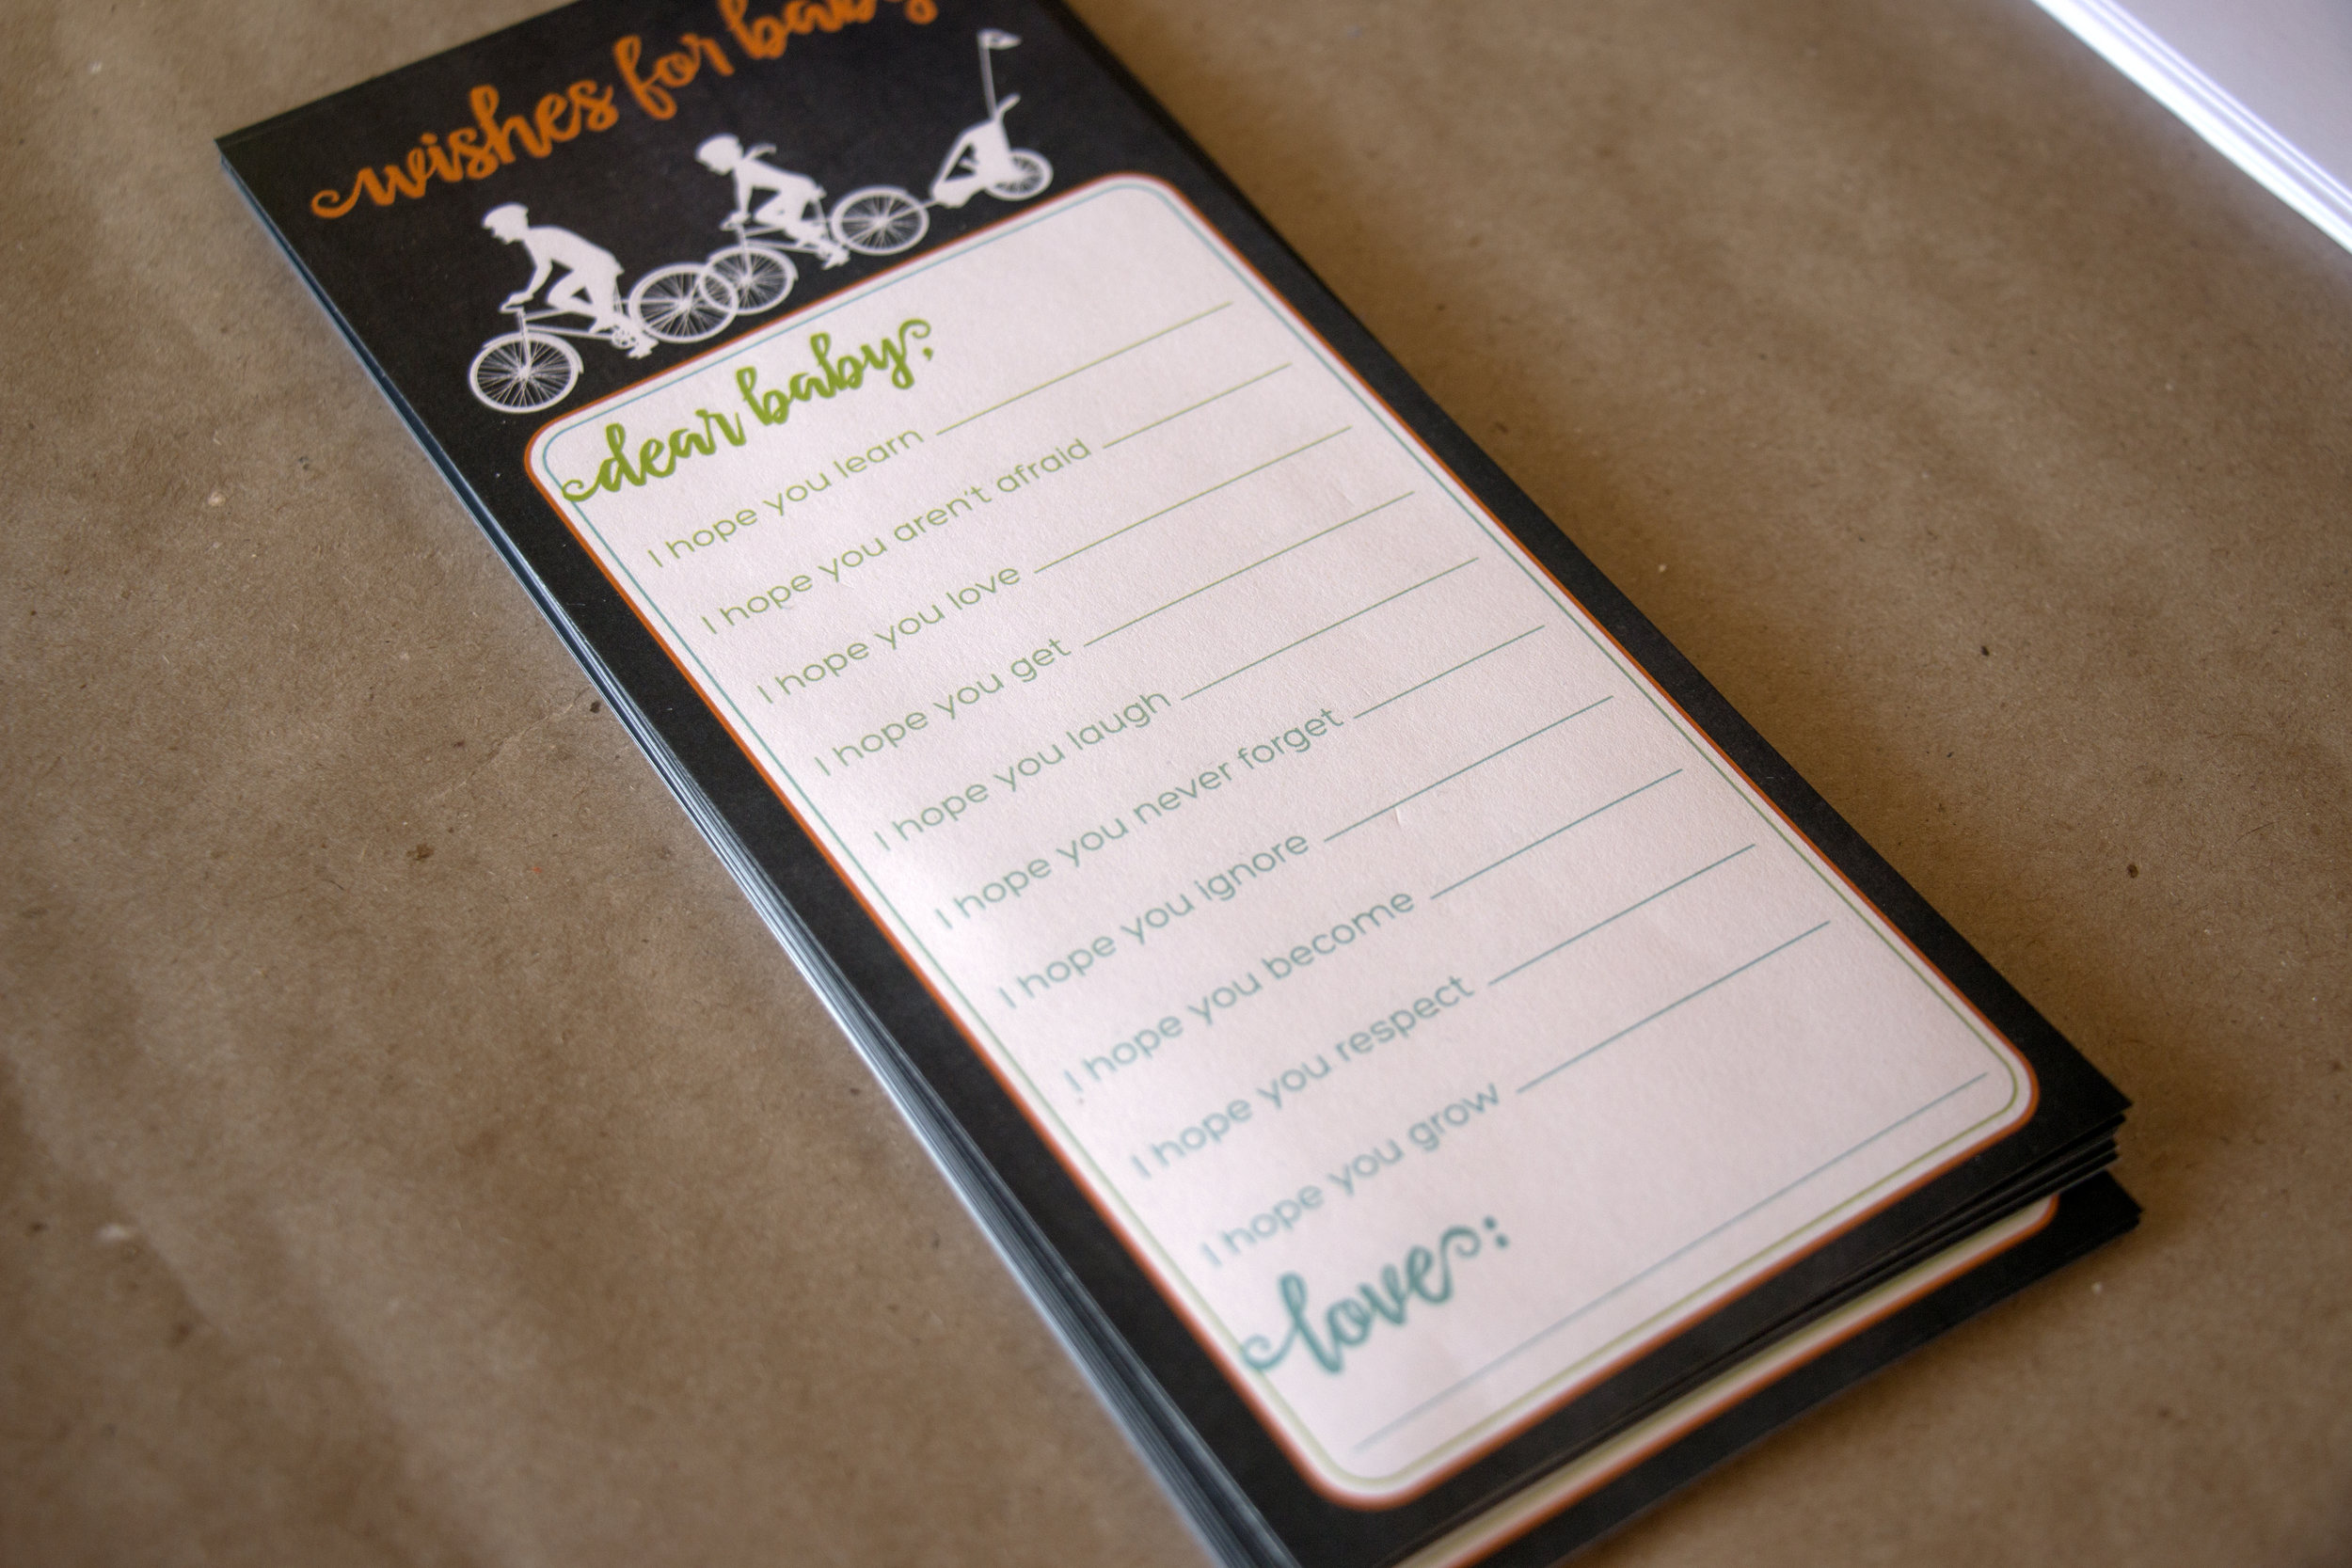 wishes for baby
dear baby,
I hope you learn
I hope you aren't afraid
I hope you love
I hope you get
I hope you laugh
I hope you never forget
I hope you ignore
I hope you become
I hope you respect
I hope you grow
love: